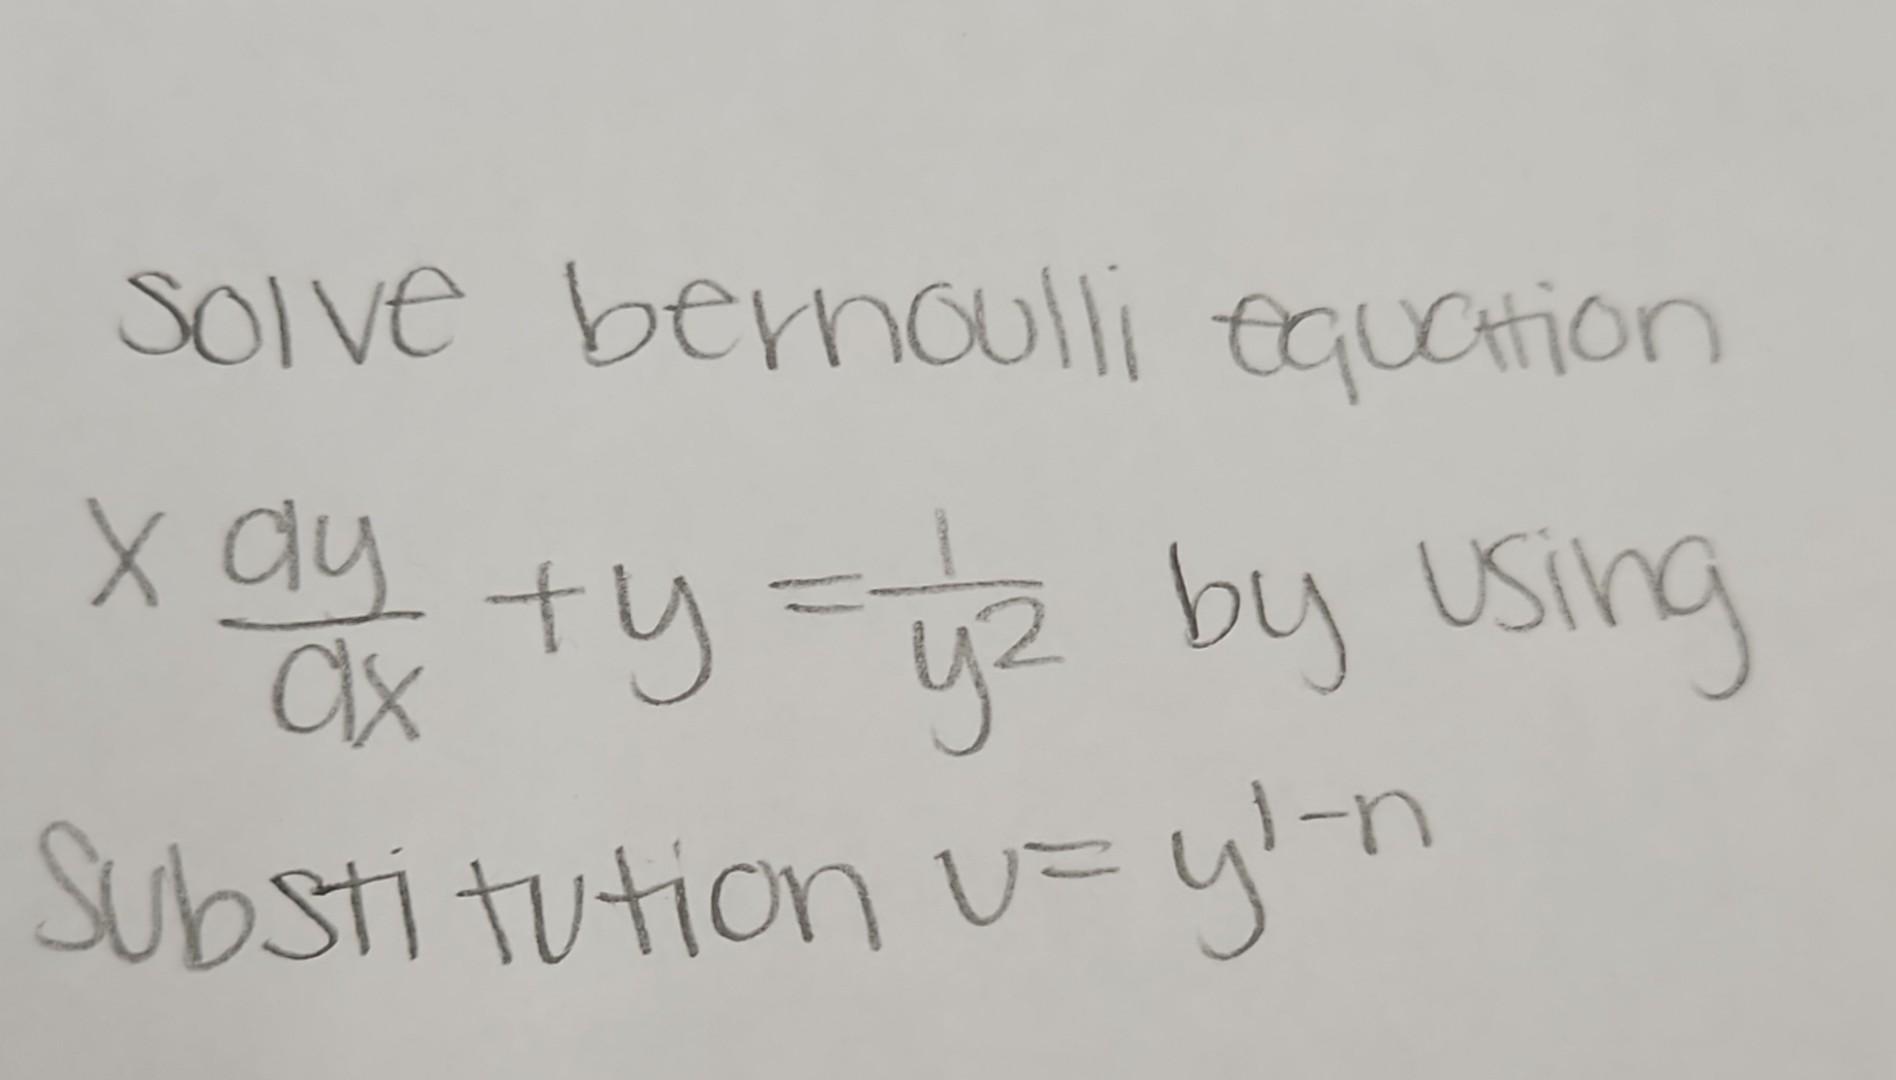 solve bernoulli equation
x dy/dx + y = 1/y² by using
Substitution u = y^(1-n)